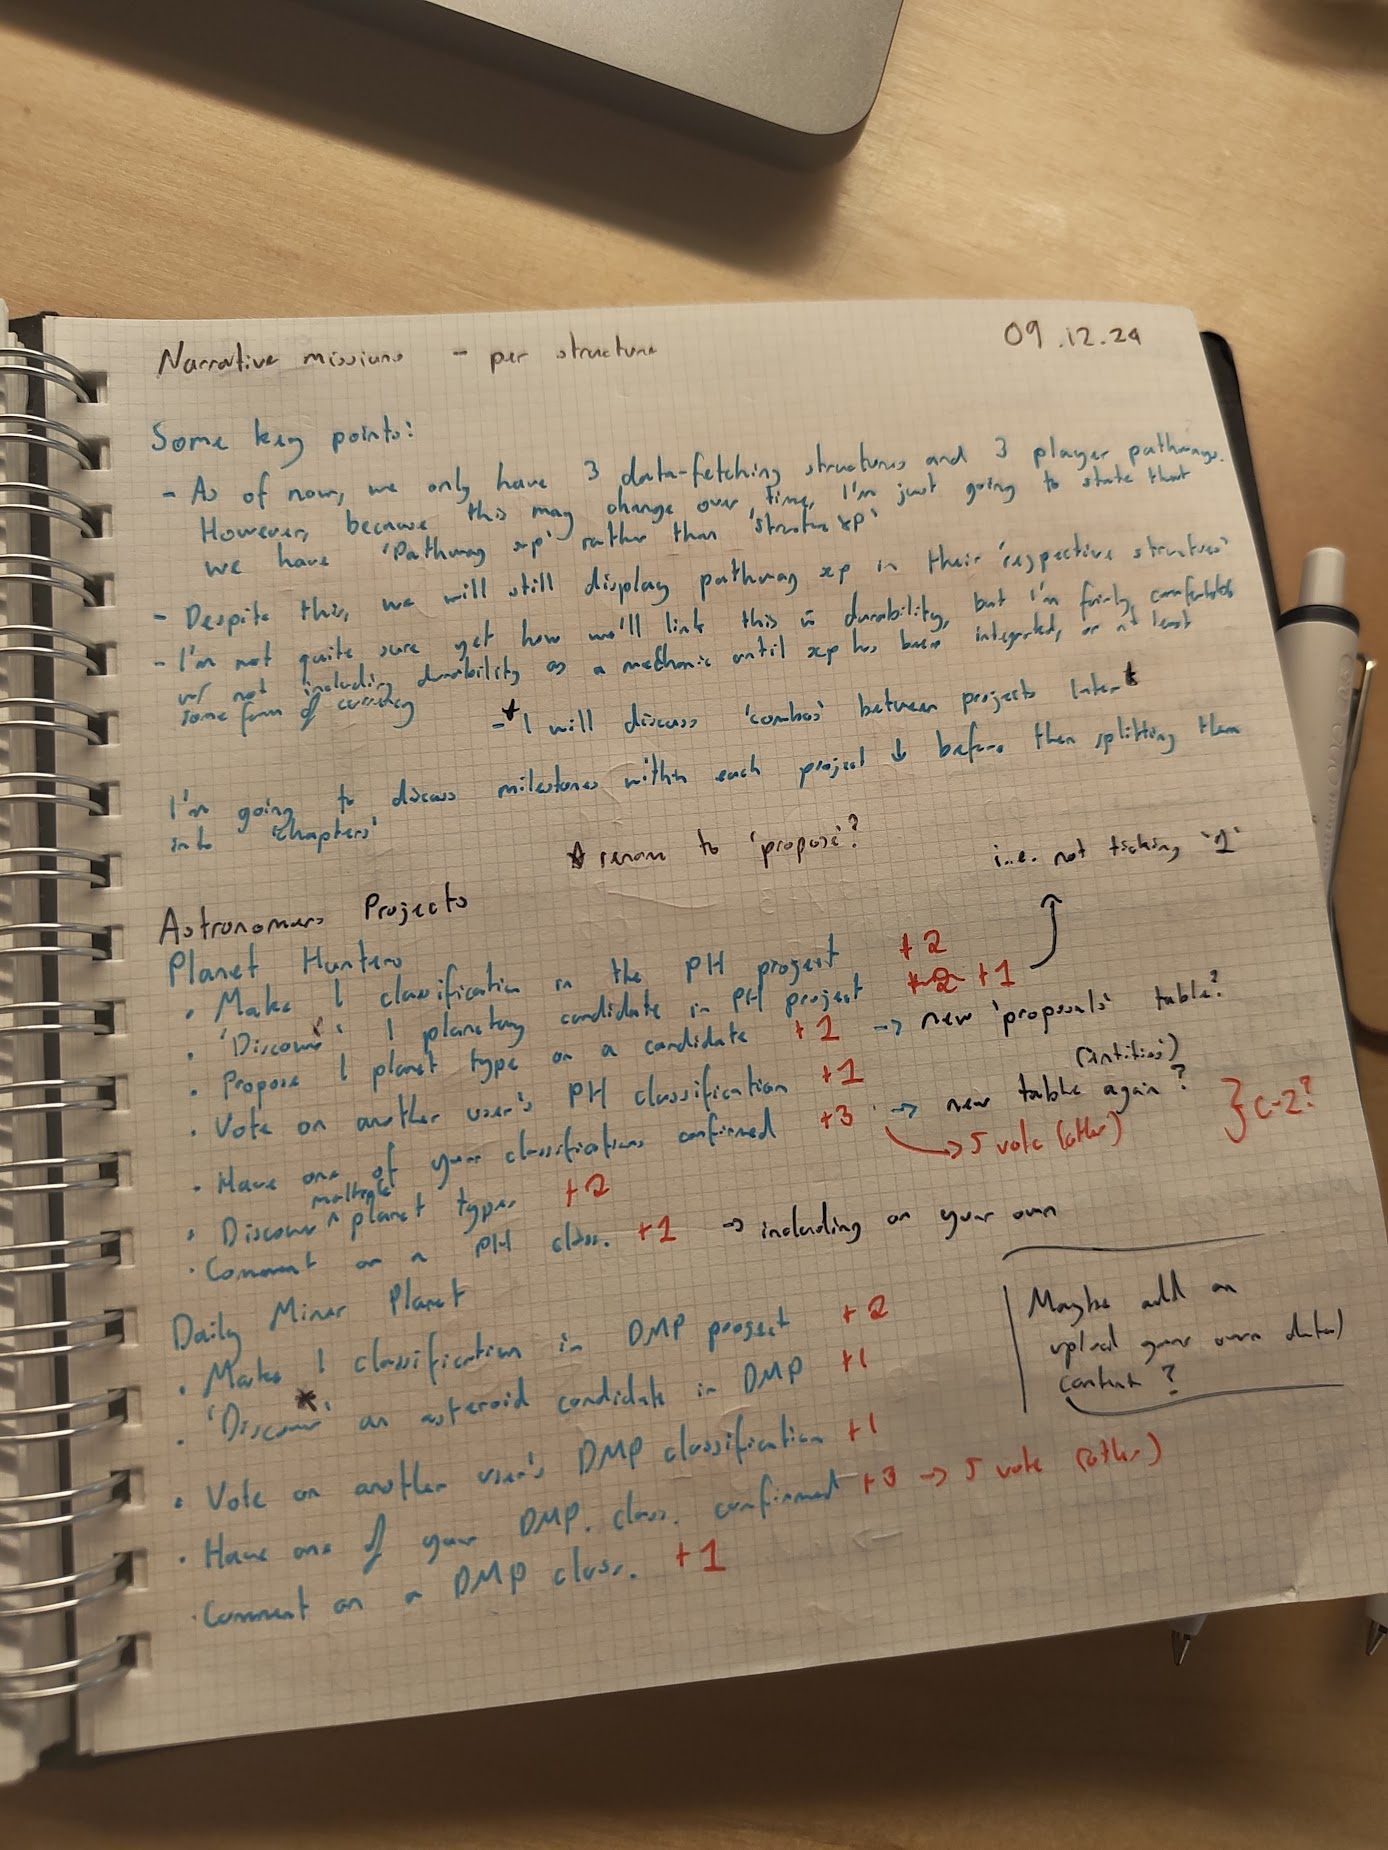 Narrative missions - per structure 09.12.24
Some key points:
- As of now, we only have 3 data-fetching structures and 3 player pathways.
However, because this may change over time, I'm just going to state that
we have 'Pathway xp' rather than 'structure xp'
- Despite this, we will still display pathway xp in their 'respective structures'
- I'm not quite sure yet how we'll link this to durability, but I'm fairly comfortable
w/ not including durability as a mechanic until xp has been integrated, or at least
some form of currency
- * I will discuss 'combos' between projects later *
I'm going to discuss milestones within each project ↓ before then splitting them
into 'chapters'
* renam to 'propose'?
i.e. not ticking '1'
Astronomers Projects
Planet Hunters
• Make 1 classification in the PH project +2
• 'Discover' 1 planetary candidate in PH project +2 +1
• Propose 1 planet type on a candidate +1 → new 'proposals' table?
• Vote on another user's PH classification +1
(entities)
• Have one of your classifications confirmed +3 → new table again?
→ 5 vote (other)
} C-2?
• Discover multiple planet types +2
• Comment on a PH class. +1 → including on your own
Daily Minor Planet
• Make 1 classification in DMP project +2
• 'Discover' * an asteroid candidate in DMP +1
• Vote on another user's DMP classification +1
• Have one of your DMP. class. confirmed +3 → 5 vote (other)
• Comment on a DMP class. +1
Maybe add an
upload your own data/
content?